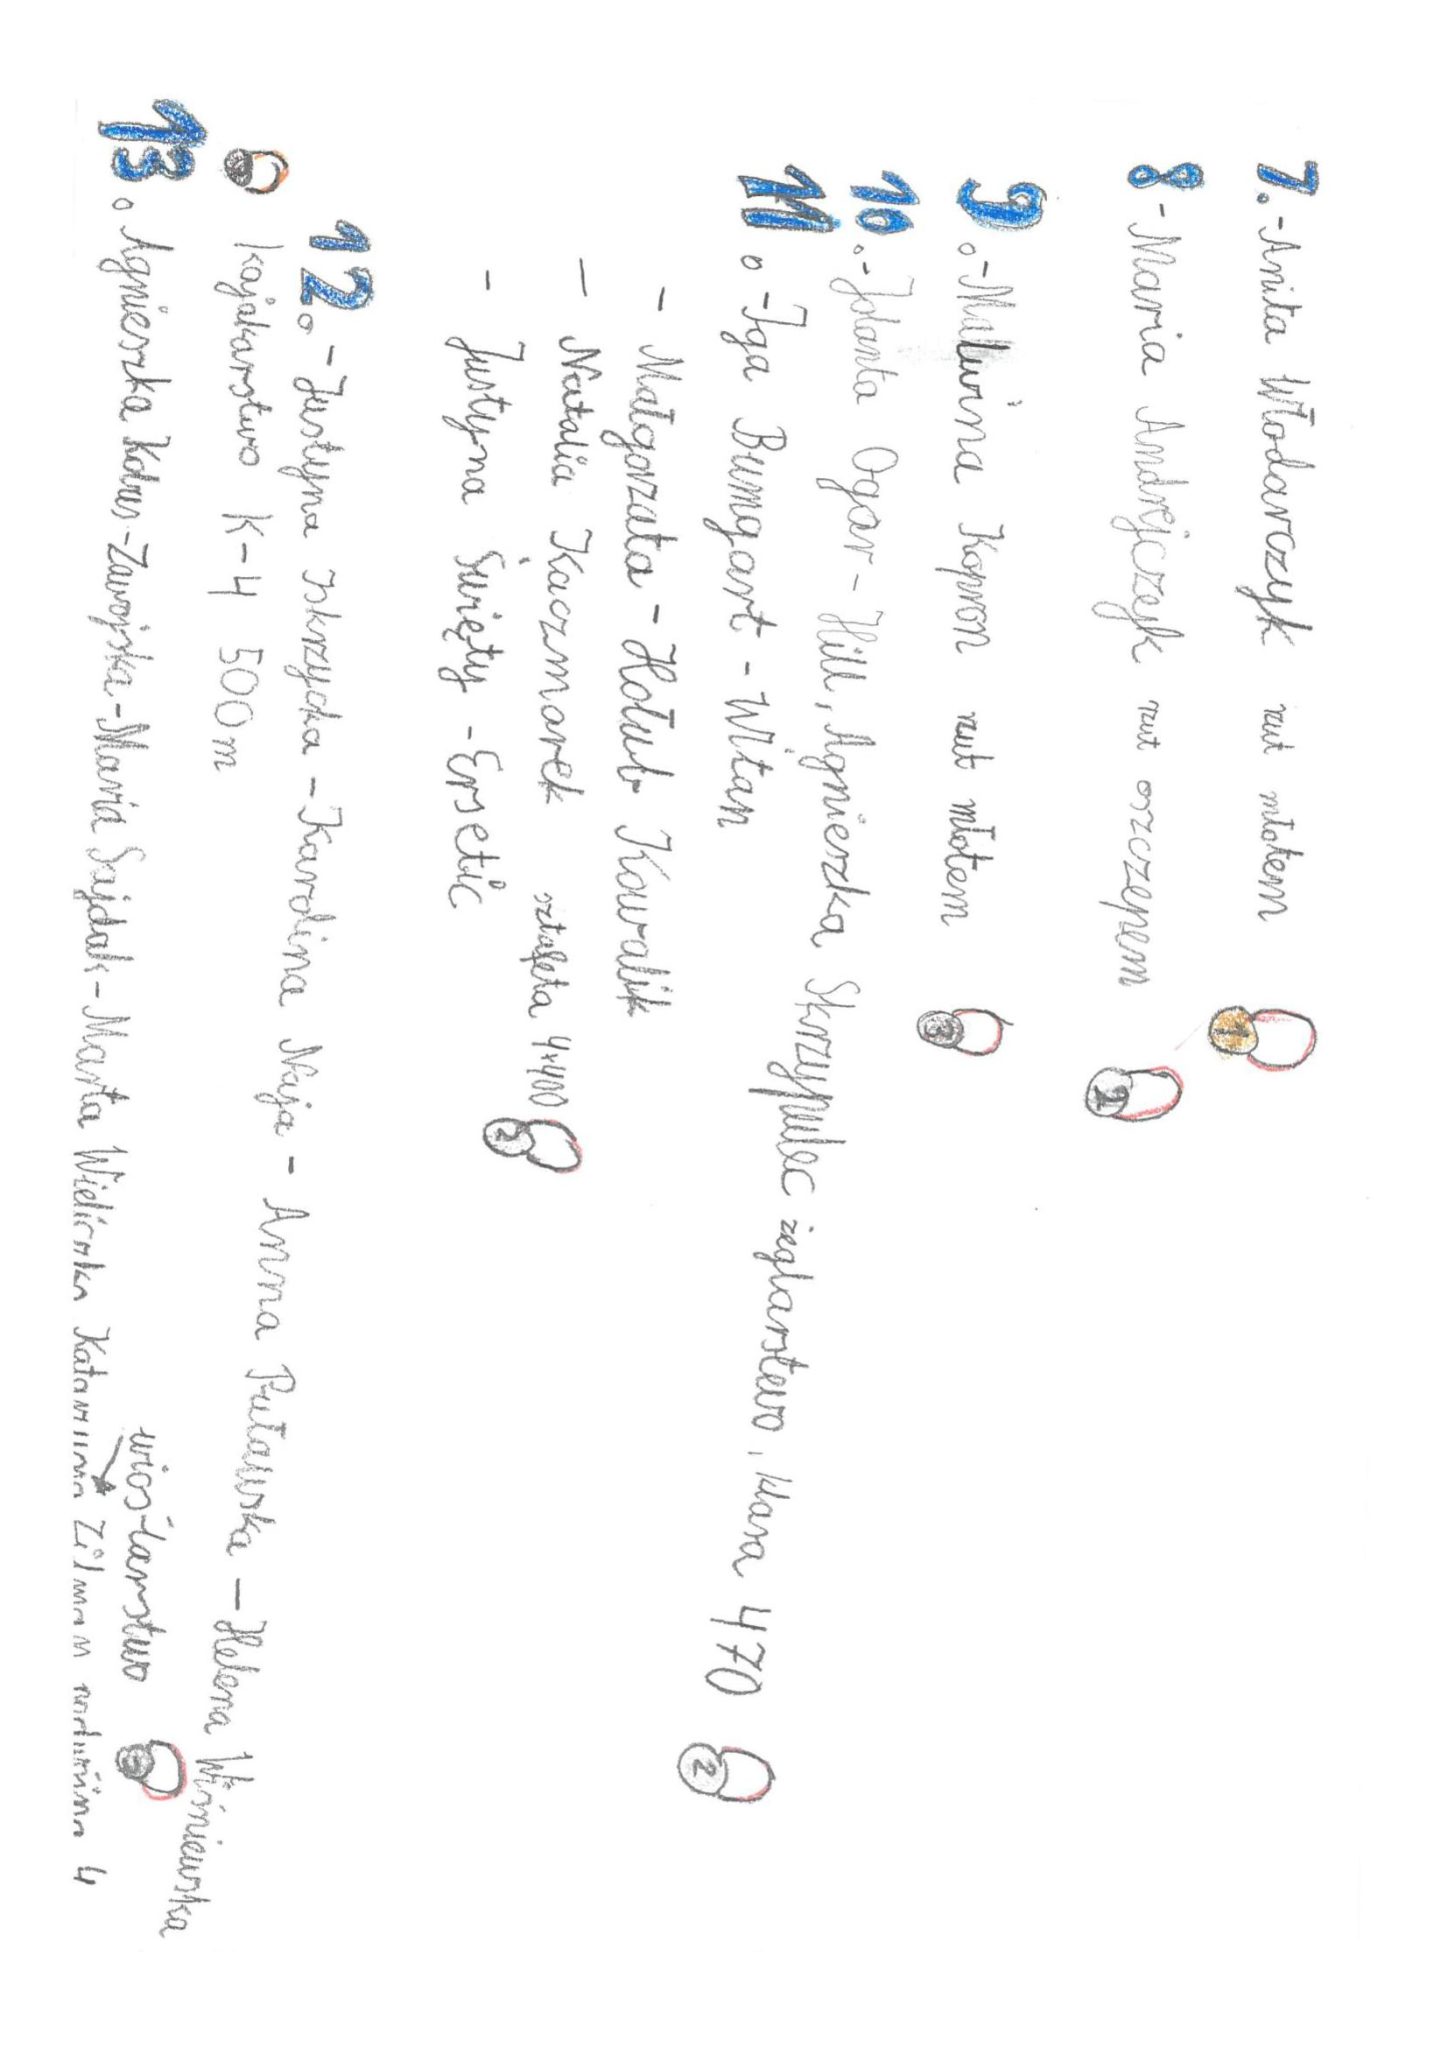 7. - Anita Włodarczyk rzut młotem 1
8 - Maria Andrejczyk rzut oszczepem 2
9. - Malwina Kopron rzut młotem 3
10. - Jolanta Ogar - Hill, Agnieszka Skrzypulec żeglarstwo, klasa 470 2
11. - Iga Bumgart - Witan
- Małgorzata - Hołub Kowalik
- Natalia Kaczmarek sztafeta 4x400 2
- Justyna Święty - Ersetic
12. - Justyna Iskrzycka - Karolina Naja - Anna Puławska - Helena Wiśniewska
kajakarstwo K-4 500m 3
wioślarstwo 3
13. Agnieszka Kobus-Zawojska - Maria Sajdak - Marta Wieliczko Katarzyna Zilman 4